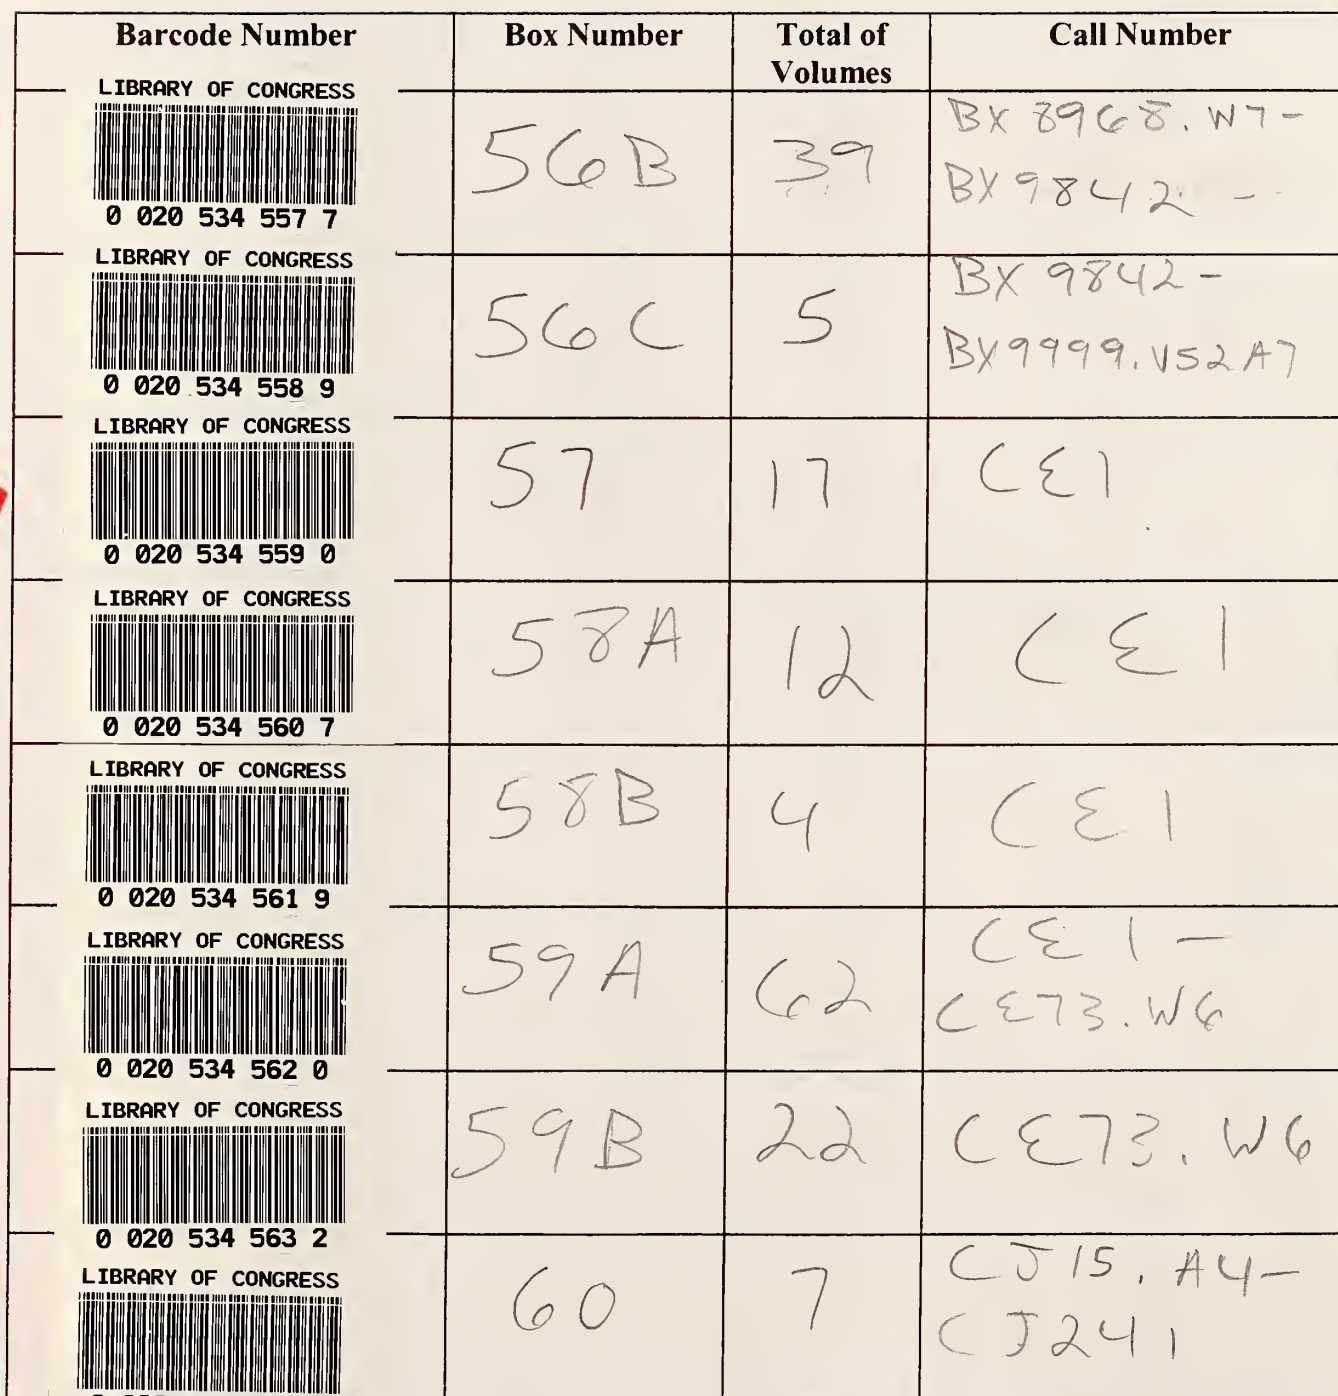 Barcode Number Box Number Total of Volumes Call Number
LIBRARY OF CONGRESS
0 020 534 557 7
56B
39
BX 8968.W7-
BX9842 -
LIBRARY OF CONGRESS
0 020 534 558 9
56C
5
BX 9842-
BX9999.V52A7
LIBRARY OF CONGRESS
0 020 534 559 0
57
17
CE1
LIBRARY OF CONGRESS
0 020 534 560 7
58A
12
CE1
LIBRARY OF CONGRESS
0 020 534 561 9
58B
4
CE1
LIBRARY OF CONGRESS
0 020 534 562 0
59A
62
CE1-
CE73.W6
LIBRARY OF CONGRESS
0 020 534 563 2
59B
22
CE73.W6
LIBRARY OF CONGRESS
60
7
CJ15.A4-
CJ241